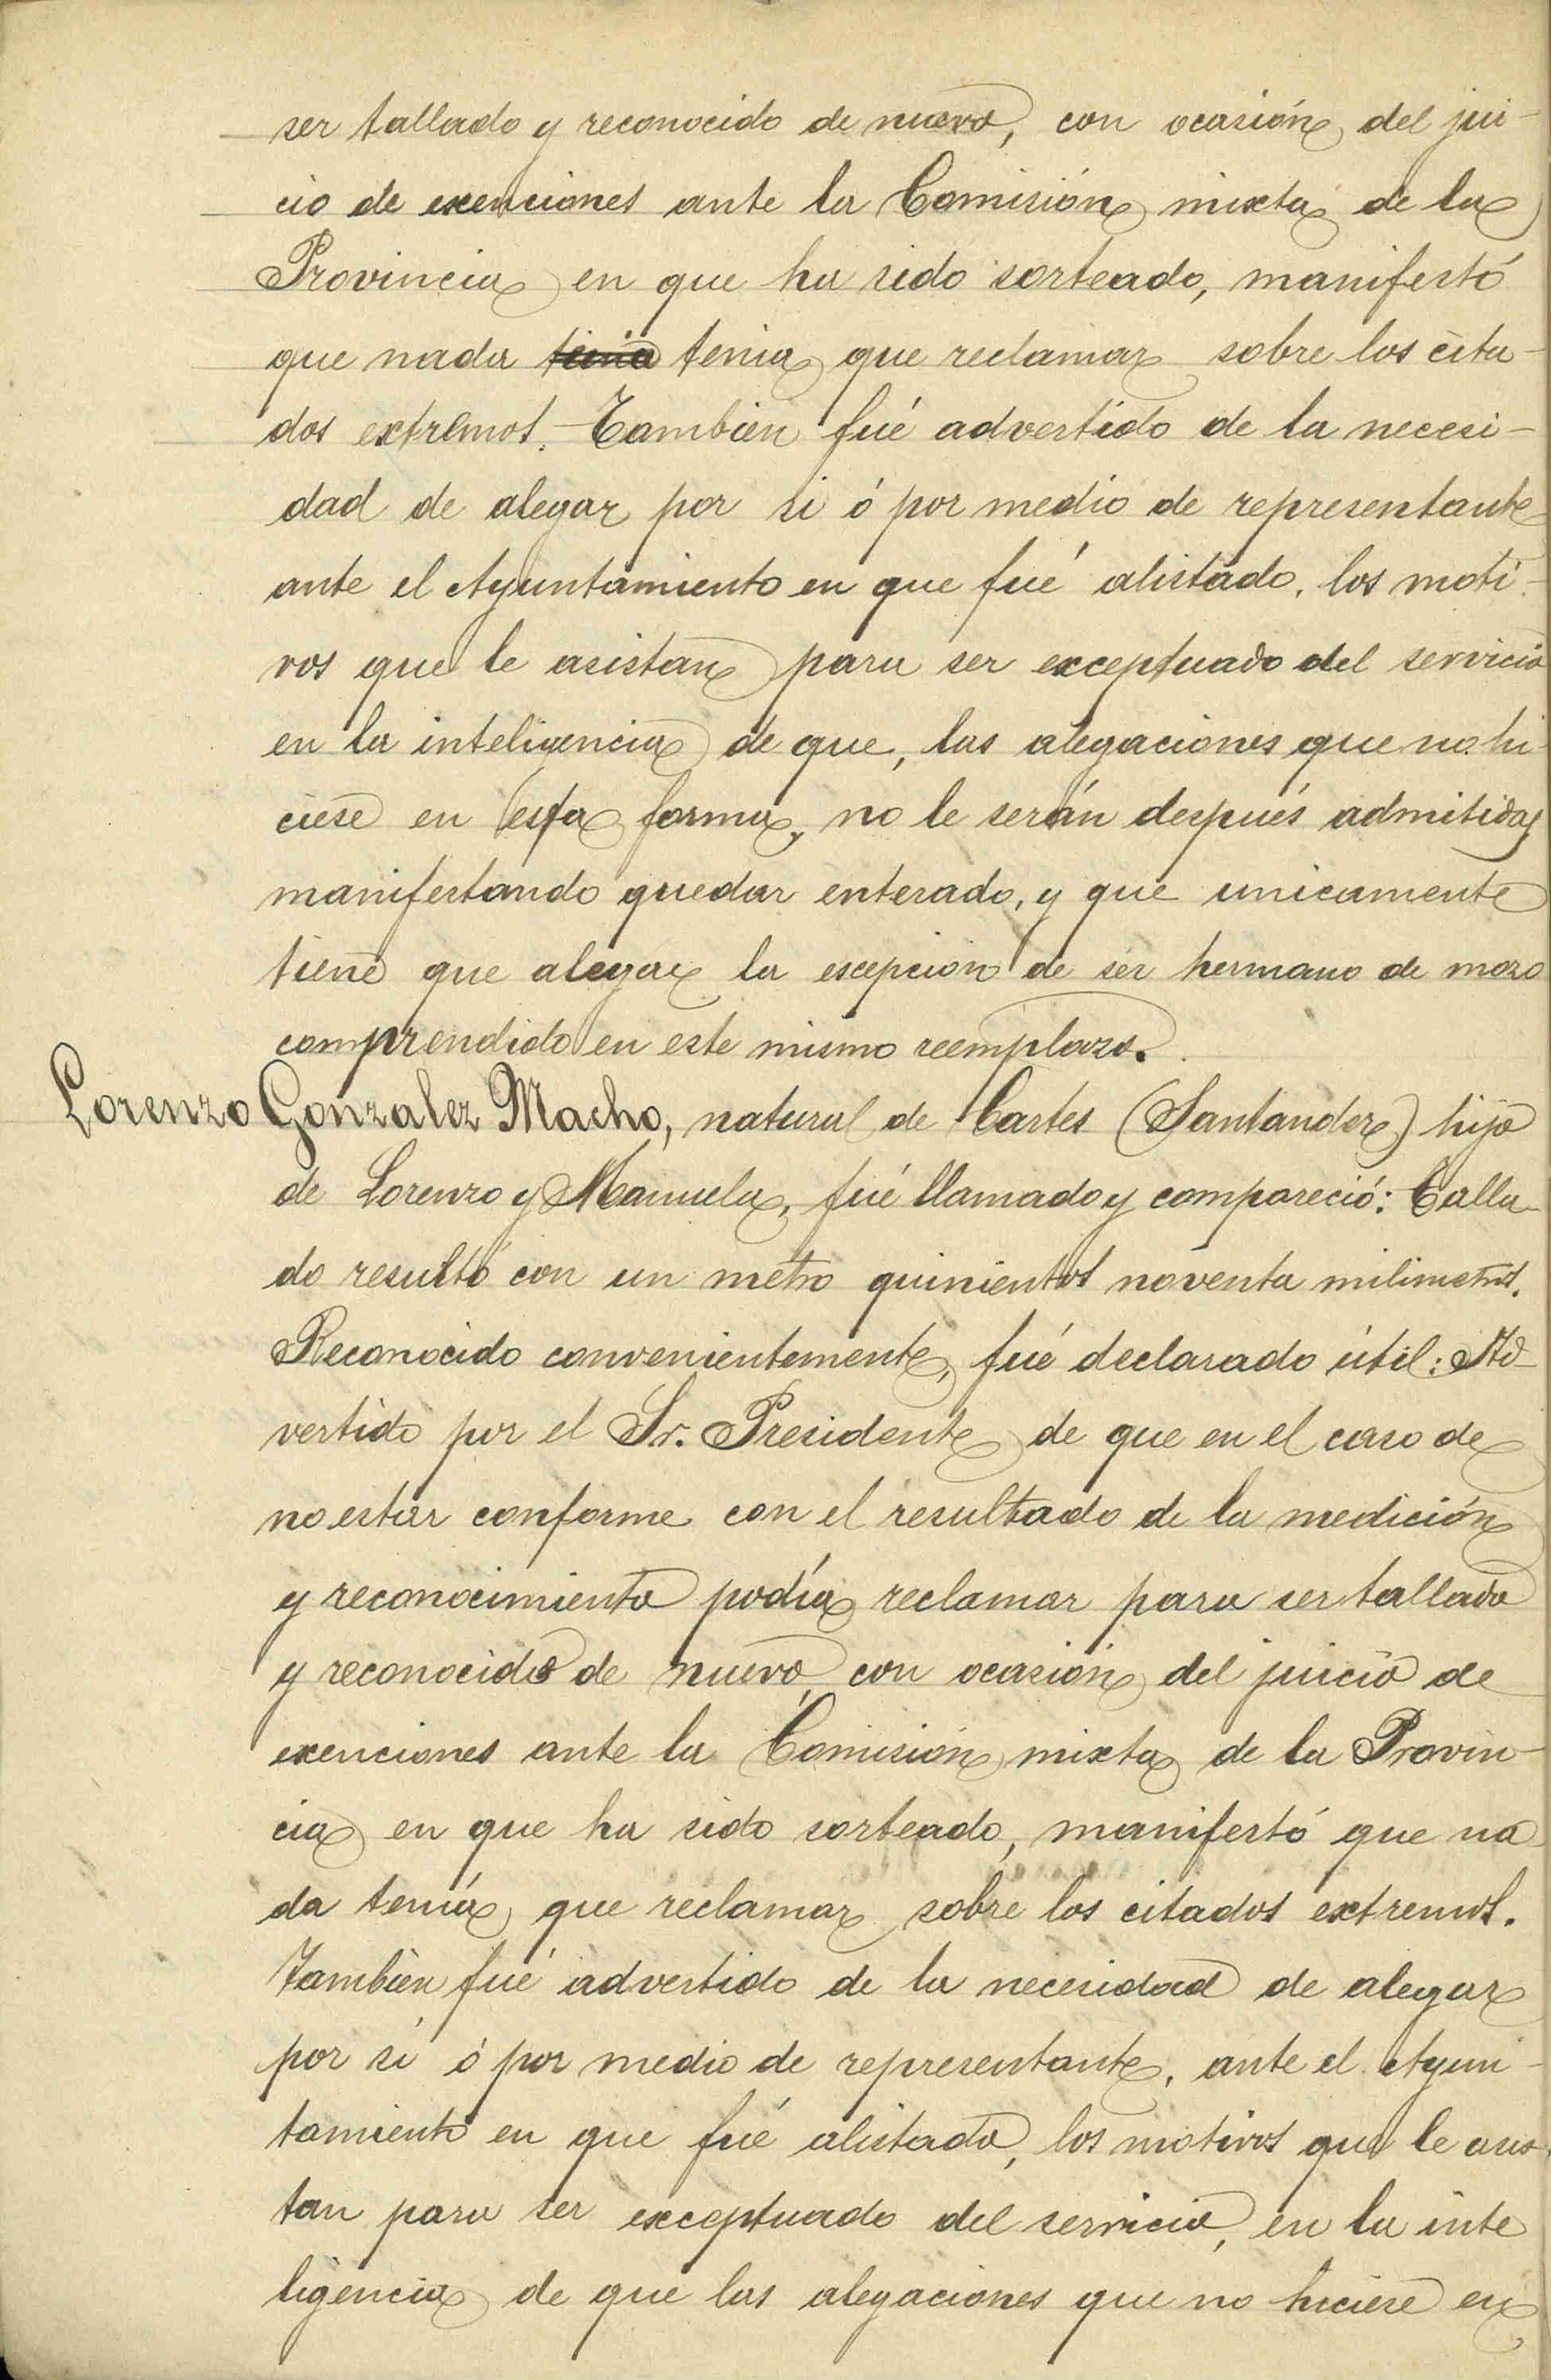 ser tallado y reconocido de nuevo, con ocasión del jui-
cio de exenciones ante la Comisión mixta de la
Provincia en que ha sido sorteado, manifestó
que nada tenia tenia que reclamar sobre los cita-
dos extremos.- Tambien fué advertido de la necesi-
dad de alegar por si ó por medio de representante
ante el Ayuntamiento en que fué alistado, los moti-
vos que le asistan para ser exceptuado del servicio
en la inteligencia de que, las alegaciones que no hi-
ciese en esta forma, no le serán después admitidas
manifestando quedar enterado, y que unicamente
tiene que alegar la escepcion de ser hermano de mozo
comprendido en este mismo reemplazo.
Lorenzo Gonzalez Macho, natural de Cartes (Santander) hijo
de Lorenzo y Manuela, fué llamado y compareció: Talla-
do resultó con un metro quinientos noventa milimetros.
Reconocido convenientemente, fué declarado útil: Ad-
vertido por el Sr. Presidente de que en el caso de
no estar conforme con el resultado de la medición
y reconocimiento podía reclamar para ser tallado
y reconocido de nuevo, con ocasion del juicio de
exenciones ante la Comisión mixta de la Provin-
cia en que ha sido sorteado, manifestó que na
da tenía que reclamar sobre los citados extremos.
Tambien fué advertido de la necesidad de alegar
por si ó por medio de representante, ante el Ayun-
tamiento en que fué alistado, los motivos que le asis-
tan para ser exceptuado del servicio, en la inte
ligencia de que las alegaciones que no hiciese en